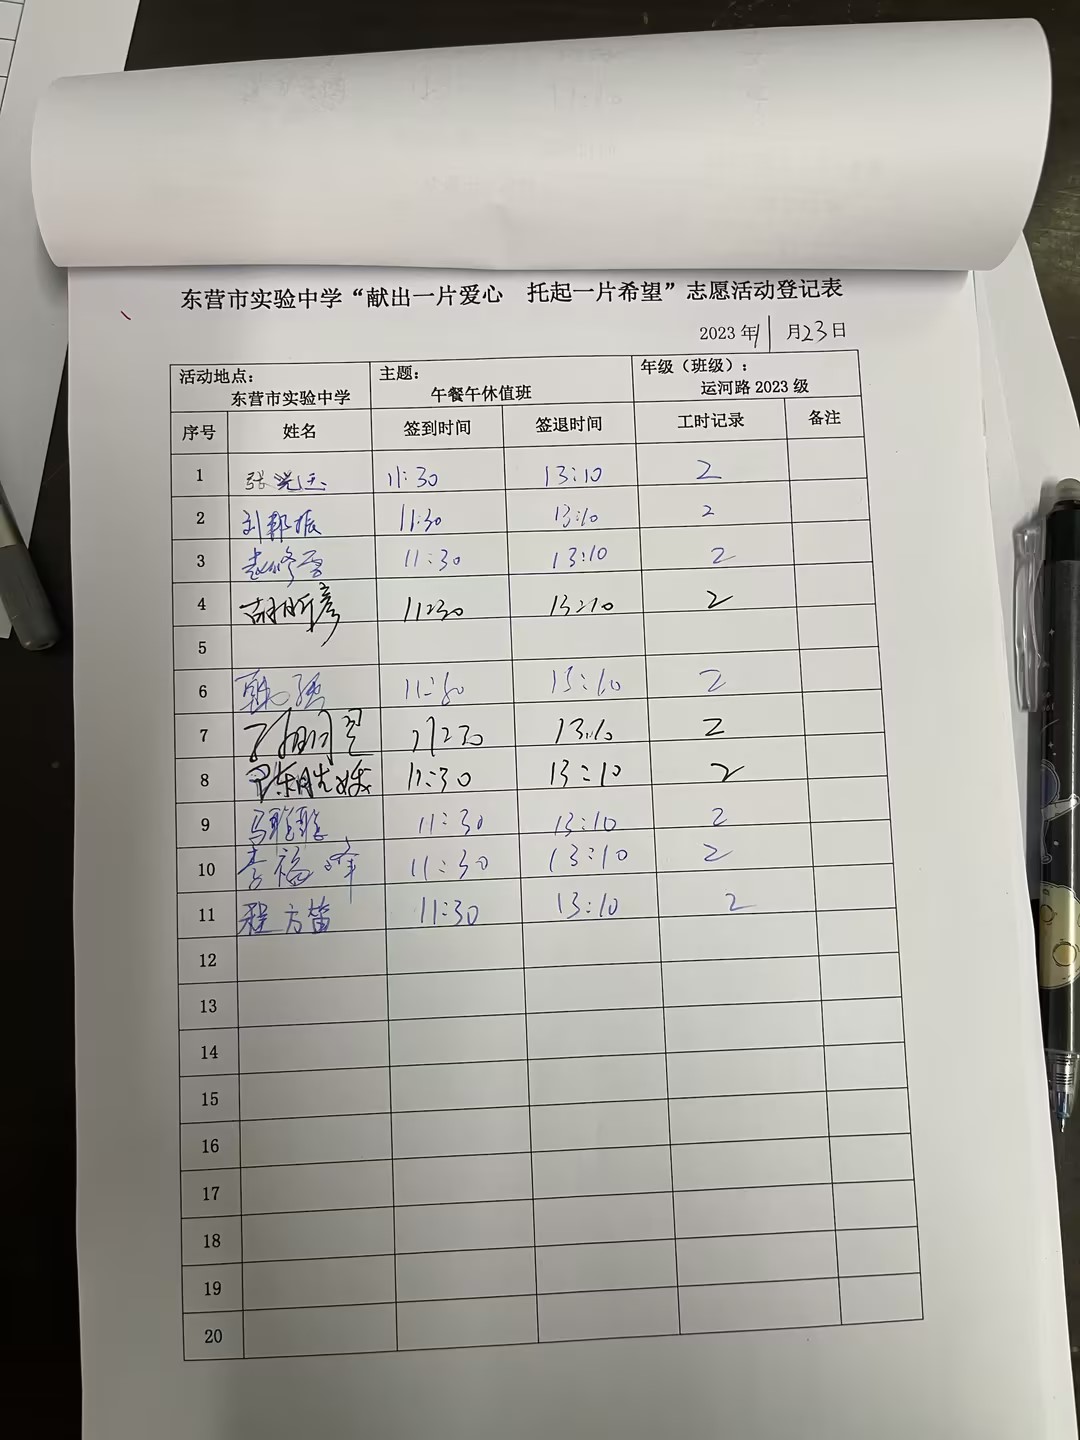 东营市实验中学“献出一片爱心 托起一片希望”志愿活动登记表
2023年11月23日
活动地点： 主题： 年级（班级）：
东营市实验中学 午餐午休值班 运河路2023级
序号 姓名 签到时间 签退时间 工时记录 备注
1 11:30 13:10 2
2 刘邦振 11:30 13:10 2
3 11:30 13:10 2
4 胡昕彦 11:30 13:10 2
5
6 韩强 11:30 13:10 2
7 11:30 13:10 2
8 11:30 13:10 2
9 11:30 13:10 2
10 李福峰 11:30 13:10 2
11 程方苗 11:30 13:10 2
12
13
14
15
16
17
18
19
20